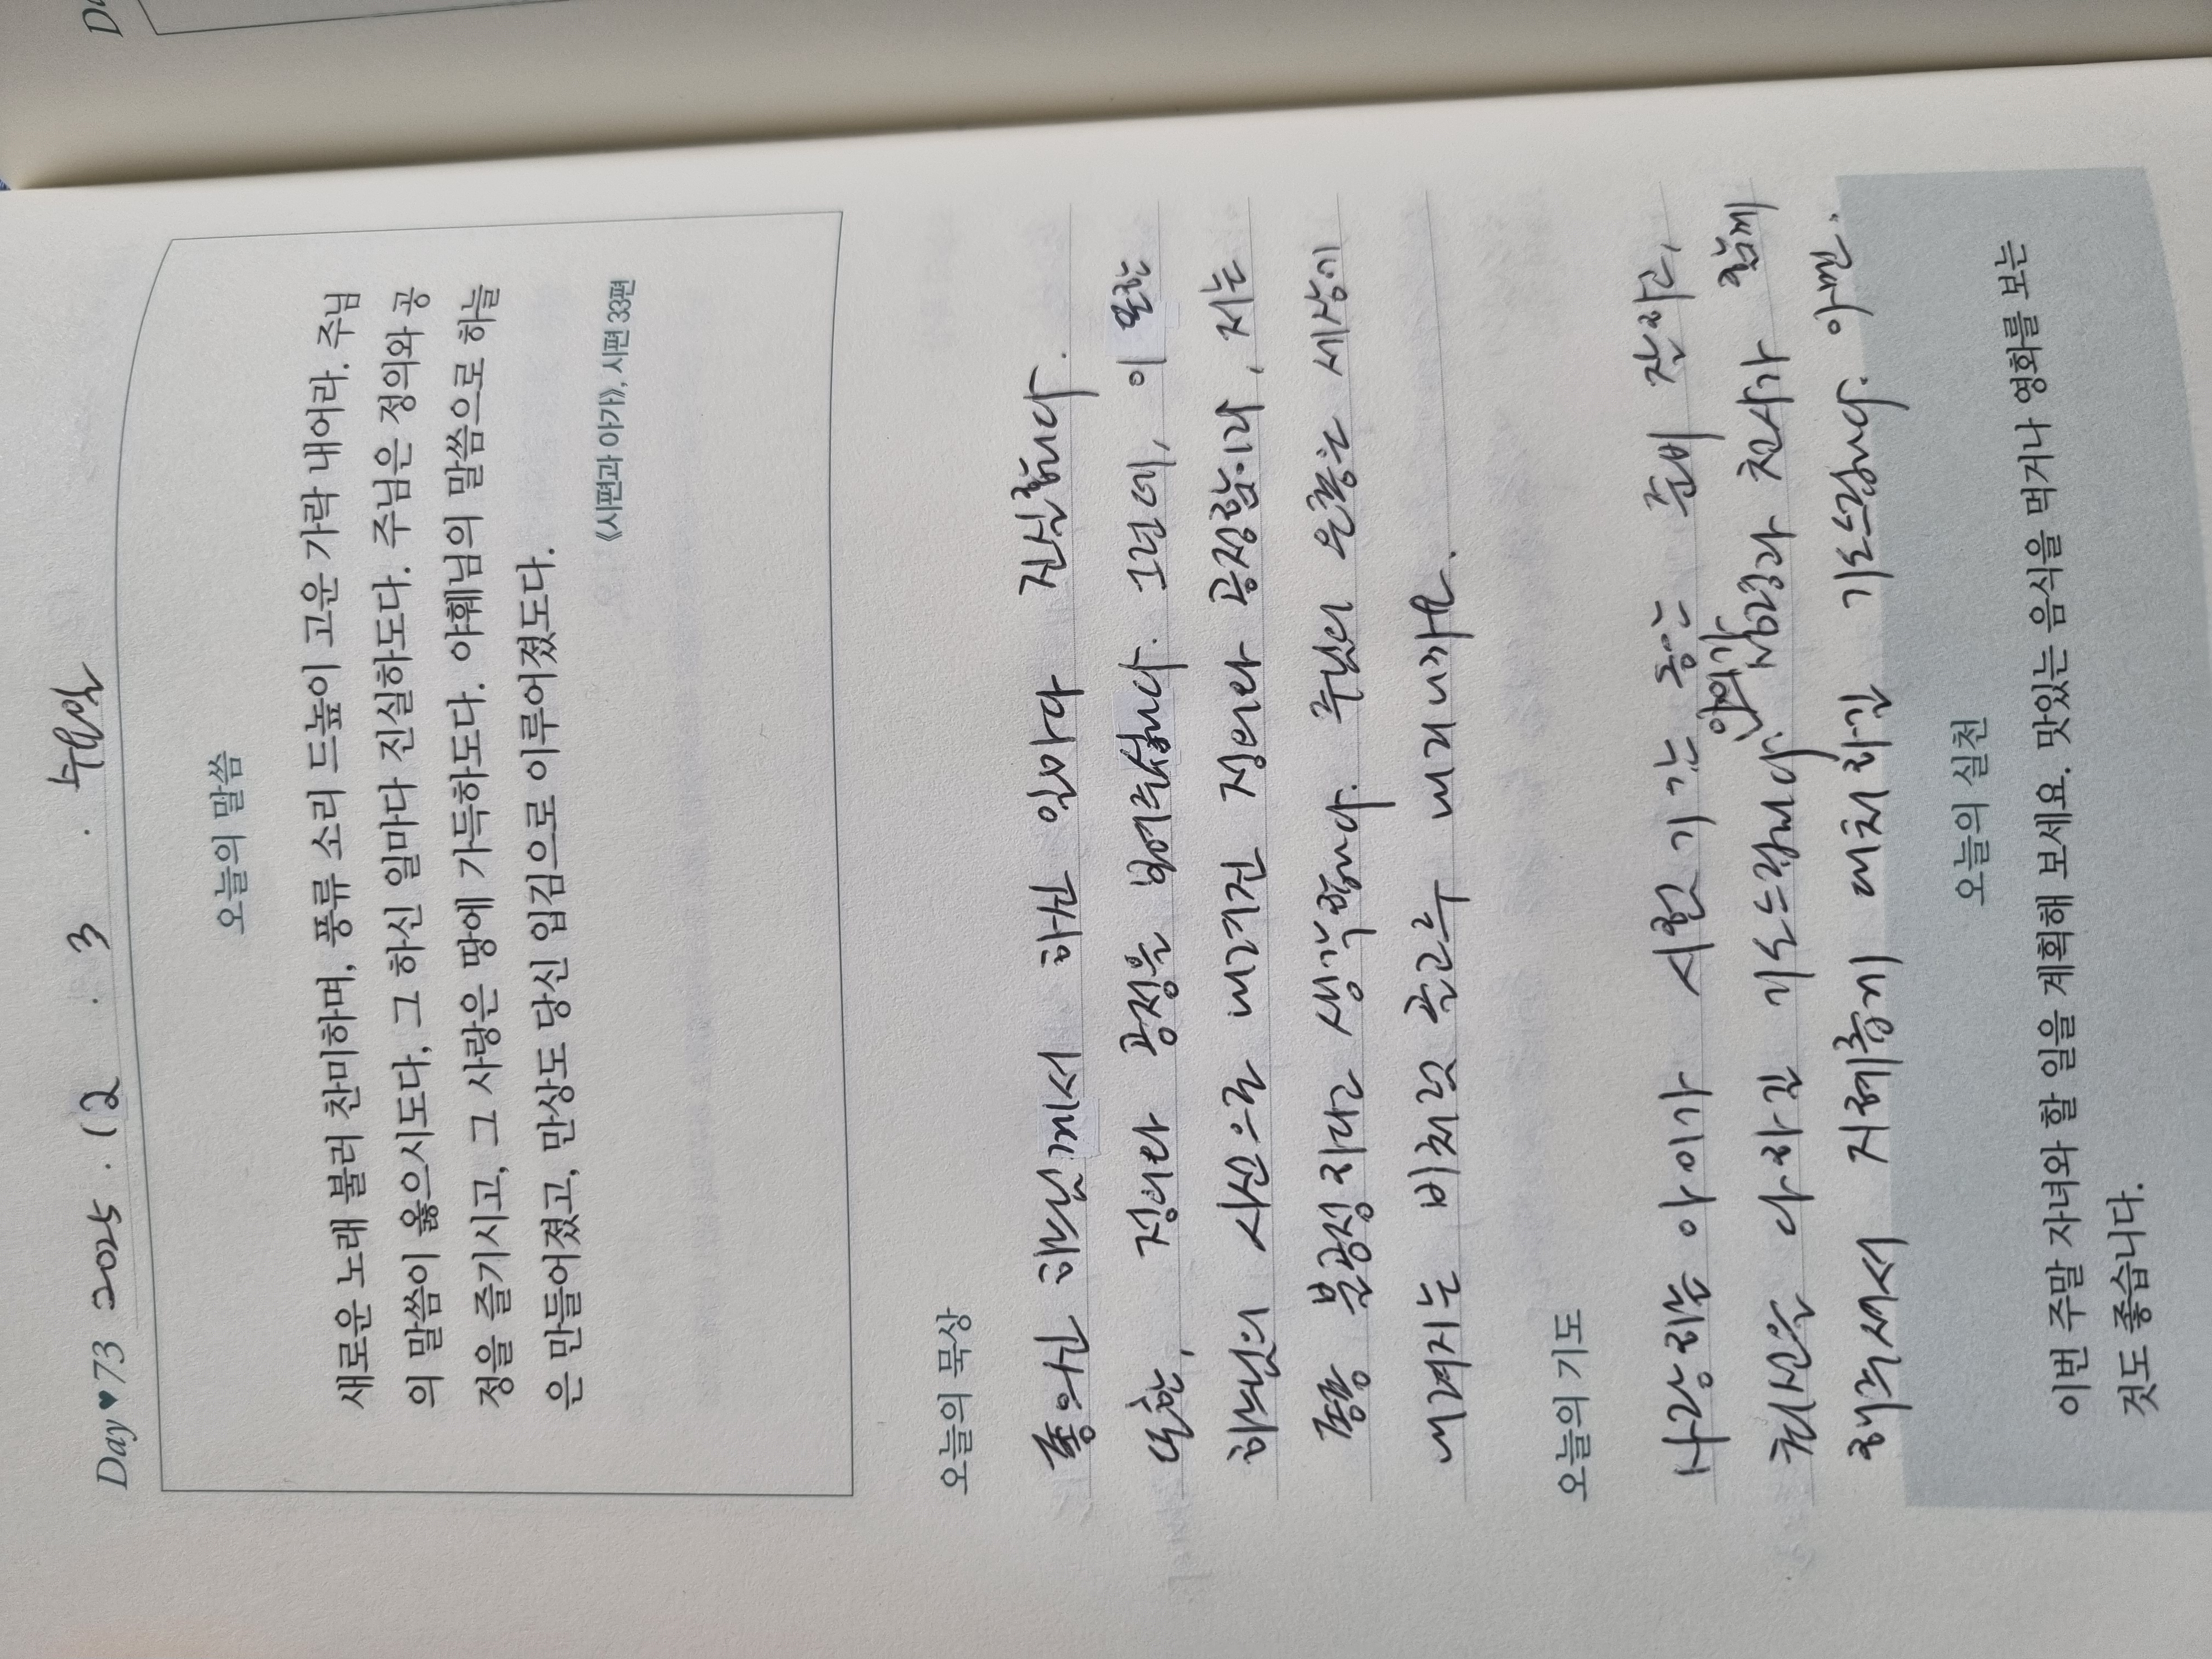 Day ♥ 73 2025 . 12 . 3 . 수요일
오늘의 말씀
새로운 노래 불러 찬미하며, 풍류 소리 드높이 고운 가락 내어라. 주님
의 말씀이 옳으시도다, 그 하신 일마다 진실하도다. 주님은 정의와 공
정을 즐기시고, 그 사랑은 땅에 가득하도다. 야훼님의 말씀으로 하늘
은 만들어졌고, 만상도 당신 입김으로 이루어졌도다.
《시편과 아가》, 시편 33편
오늘의 묵상
좋으신 하느님께서 하신 일마다 진실합니다.
또한, 정의와 공정을 보여주십니다. 그런데, 이 또한
하느님의 시선으로 내려진 정의와 공정함이라, 저는
종종 불공정하다고 생각합니다. 주님의 은총는 세상에
내려지는 빛처럼 골고루 내리니까요.
오늘의 기도
사랑하는 아이가 시험기간 동안 준비 잘하고,
최선을 다하길 기도드립니다. 성령과 천사가 함께
해주셔서 지혜롭게 대처하길 기도드립니다. 아멘.
오늘의 실천
이번 주말 자녀와 할 일을 계획해 보세요. 맛있는 음식을 먹거나 영화를 보는
것도 좋습니다.